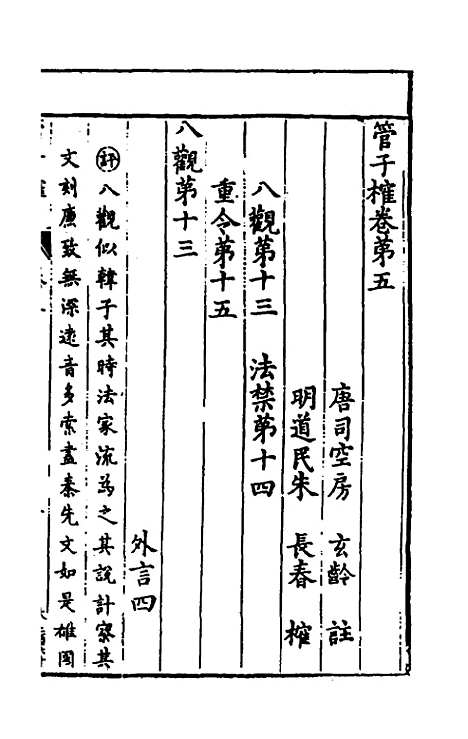 管子榷卷第五
唐司空房　玄齡　註
明道民朱　長春　榷
八觀第十三　法禁第十四
重令第十五
八觀第十三
外言四
評八觀似韓子其時法家流為之其說計察其
文刻廉致無深遠音多索盡秦先文如是雄國